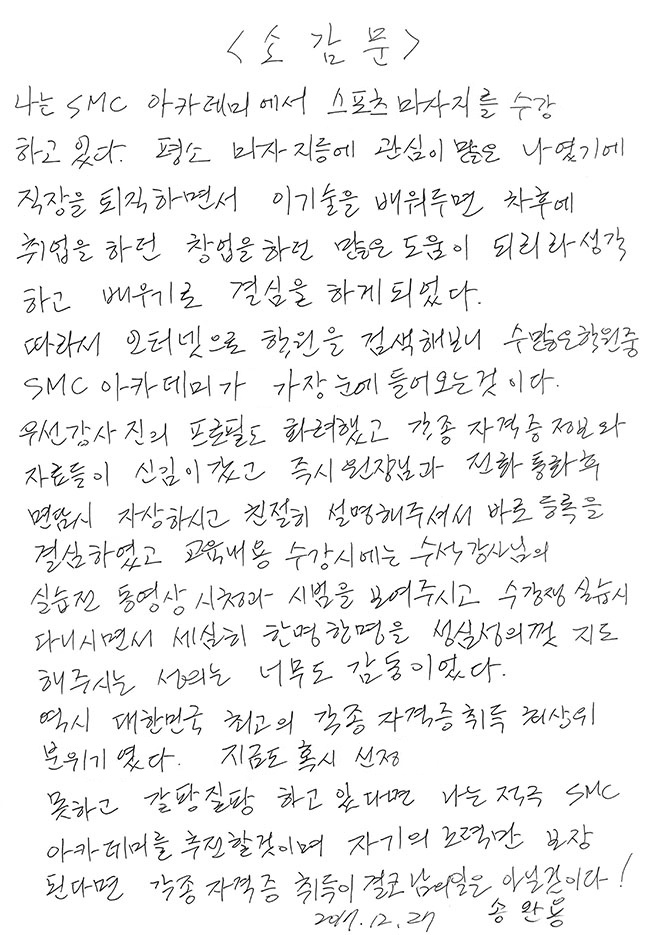 <소감문>
나는 SMC 아카데미에서 스포츠 마사지를 수강
하고 있다. 평소 마사지등에 관심이 많은 나였기에
직장을 퇴직하면서 이기술을 배워두면 차후에
취업을 하던 창업을 하던 많은 도움이 되리라 생각
하고 배우기로 결심을 하게되었다.
따라서 인터넷으로 학원을 검색해보니 수많은학원중
SMC 아카데미가 가장 눈에 들어오는것 이다.
우선강사 진의 프로필도 화려했고 각종 자격증 정보와
자료들이 신김이 갔고 즉시 원장님과 전화 통화후
면담시 자상하시고 친절히 설명해주셔서 바로 등록을
결심하였고 교육내용 수강시에는 수석강사님의
실습전 동영상 시청과 시범을 보여주시고 수강생 실습시
다니시면서 세심히 한명한명을 성심성의껏 지도
해주시는 성의는 너무도 감동이었다.
역시 대한민국 최고의 각종 자격증취득 최상위
분위기 였다. 지금도 혹시 선정
못하고 갈팡질팡 하고 있다면 나는 적극 SMC
아카데미를 추천할것이며 자기의 노력만 보장
된다면 각종 자격증 취득이 결코 남의일은 아닐것이다!
2017.12.27 송완용